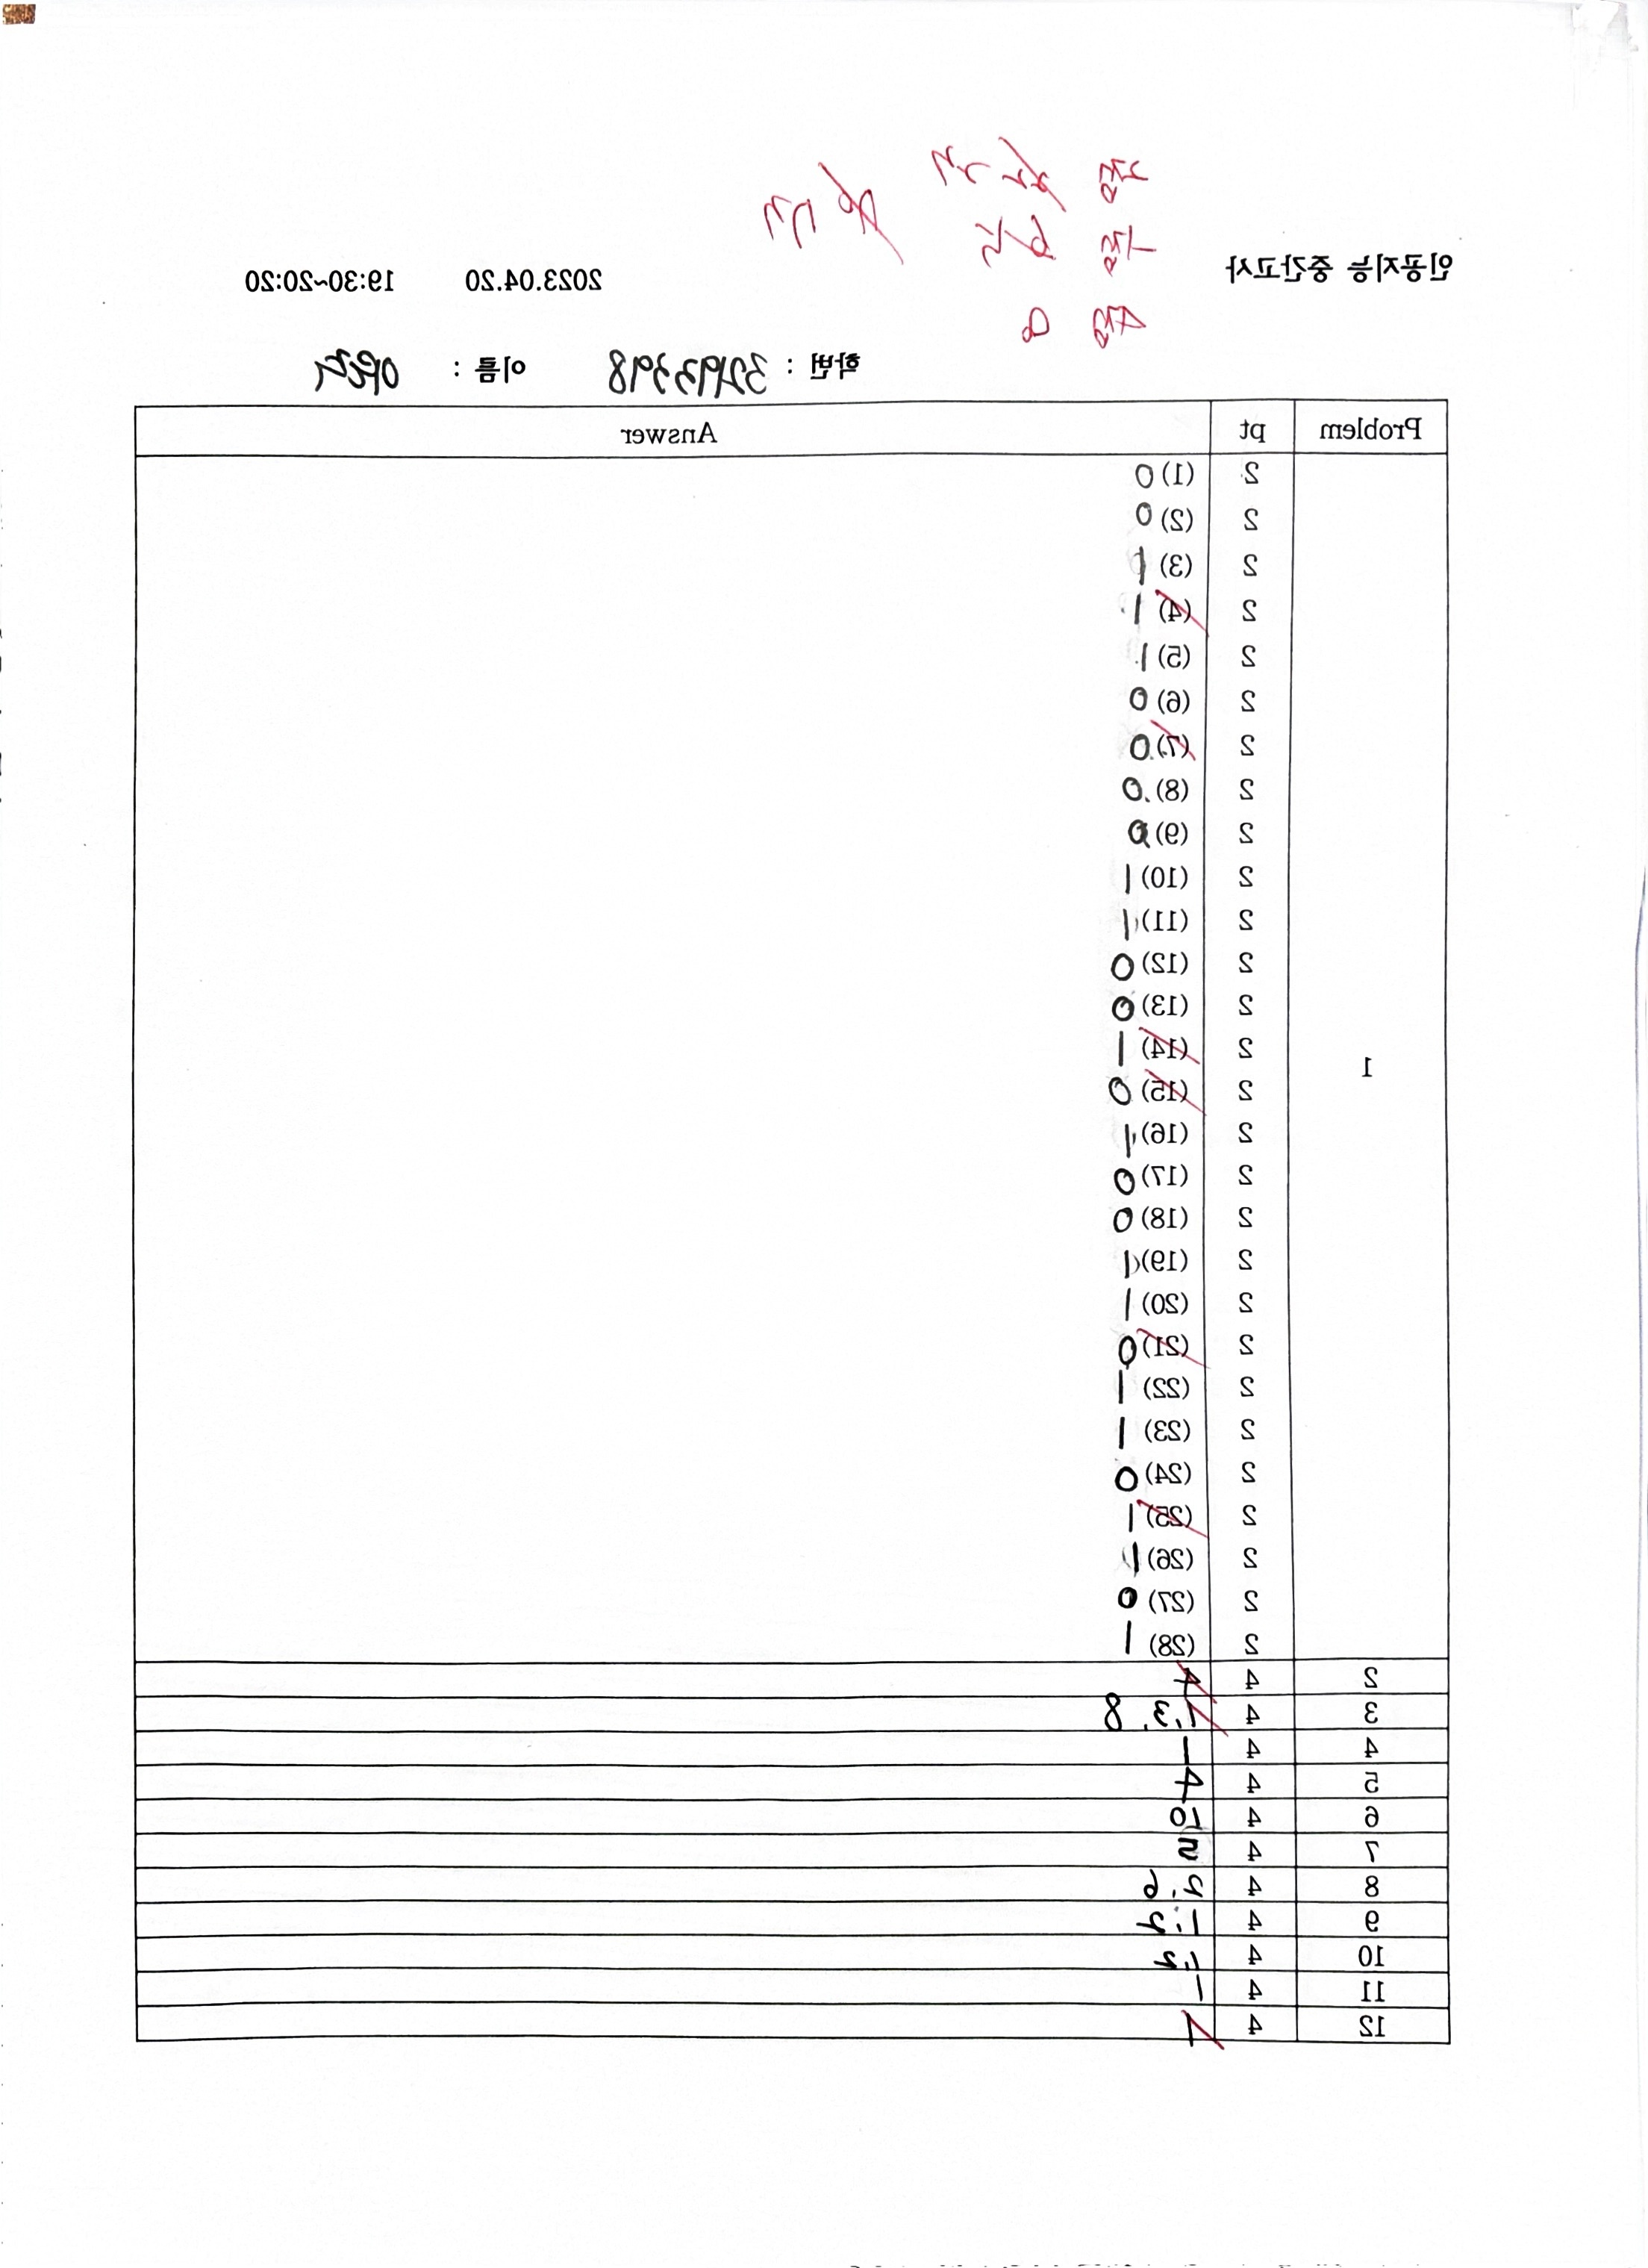 인공지능 중간고사 2023.04.20 19:30~20:20
학번 : 32193398 이름 :
Problem pt Answer
1
2 (1) 0
2 (2) 0
2 (3) 1
2 (4) 1
2 (5) 1
2 (6) 0
2 (7) 0
2 (8) 0
2 (9) 0
2 (10) 1
2 (11) 1
2 (12) 0
2 (13) 0
2 (14) 1
2 (15) 0
2 (16) 1
2 (17) 0
2 (18) 0
2 (19) 1
2 (20) 1
2 (21) 0
2 (22) 1
2 (23) 1
2 (24) 0
2 (25) 1
2 (26) 1
2 (27) 0
2 (28) 1
2 4 4
3 4 1.3. 8
4 4 1
5 4 4
6 4
7 4
8 4 2.6
9 4 1.2
10 4 1.2
11 4 1
12 4 1